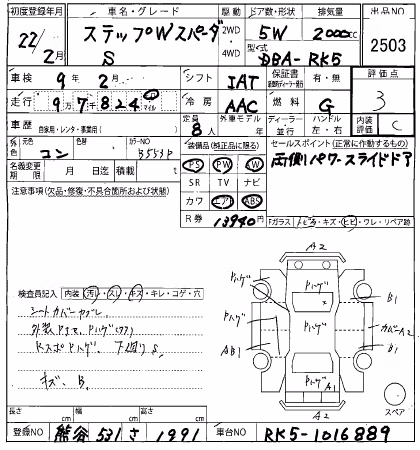 初度登録年月 車名・グレード 駆動 ドア数・形状 排気量 出品NO
22/2月 ステップWスパーダ S 2WD 4WD 5W 2000cc 2503
型式 DBA-RK5
車検 9年2月 シフト IAT 保証書 有・無 評価点 3
走行 97824 マイル 冷房 AAC 燃料 G
車歴 自家用・レンタ・事業用( ) 定員 8人 外車モデル年 ディーラー・並行 ハンドル 左・右 内装評価 C
外色 元色 コン 色替 カラーNO B553P 装備品(純正品に限る) セールスポイント(正常に作動するもの)
両側パワースライドドア
名義変更期限 月 日迄 積載量 t PS PW
注意事項(欠品・修復・不具合箇所および状態) SR TV ナビ
カワ エアB ABS
R券 13940円 Fガラス トビ石・キズ・ヒビ・ワレ・リペア跡
検査員記入 内装(汚れ・スレ・キズ・キレ・コゲ・穴
シートカバーヤブレ
外装
下廻りS
キズ、B.
A2
Pハゲ
B1
Pハゲ
Pハゲ
カバーA2
AB1
B1
Pハゲ
A1
A2
スペア
長さ cm 幅 cm 高さ cm
登録NO 熊谷 531 さ 1991 車台NO RK5-1016889